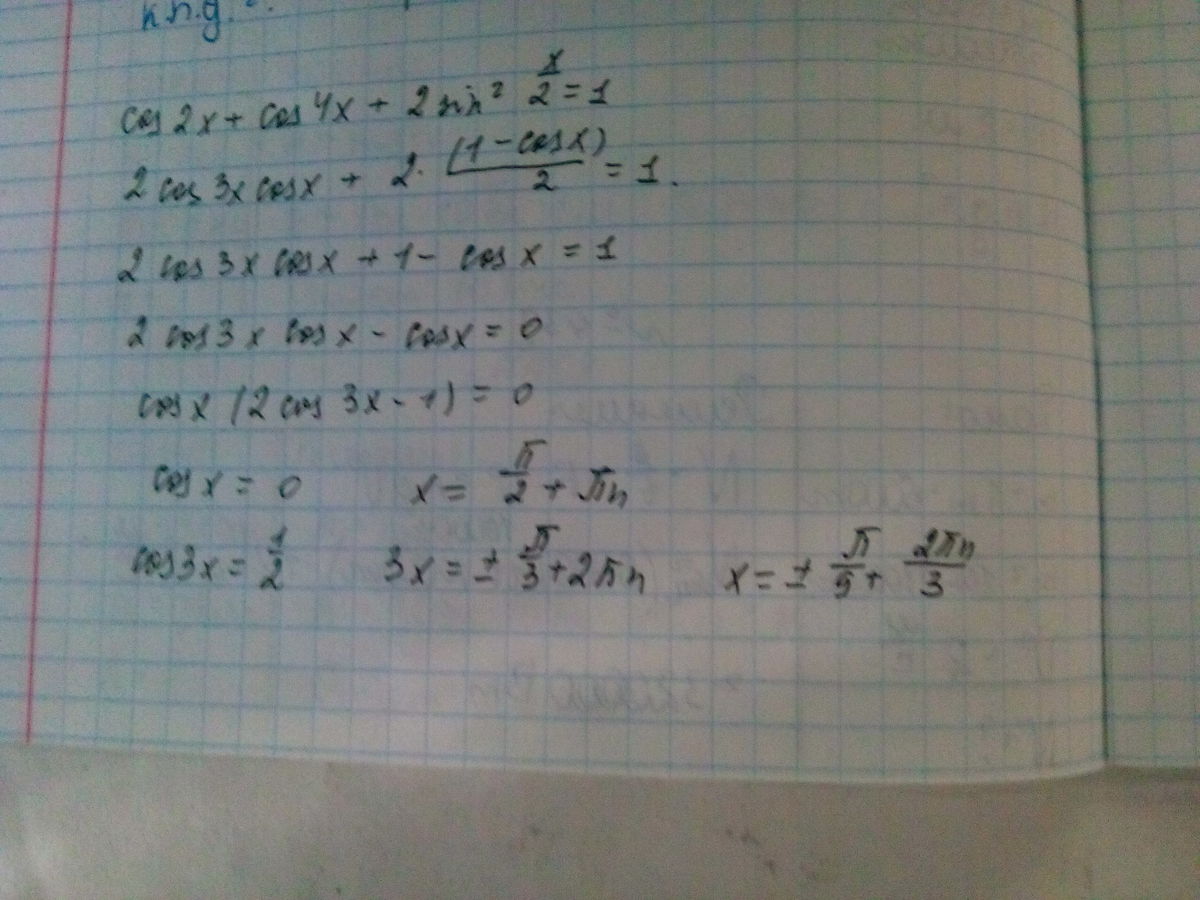 к.п.д.
cos 2x + cos 4x + 2 sin² x/2 = 1
2 cos 3x cos x + 2 · (1 - cos x)/2 = 1.
2 cos 3x cos x + 1 - cos x = 1
2 cos 3x cos x - cos x = 0
cos x (2 cos 3x - 1) = 0
cos x = 0 x = π/2 + πn
cos 3x = 1/2 3x = ± π/3 + 2πn x = ± π/9 + 2πn/3